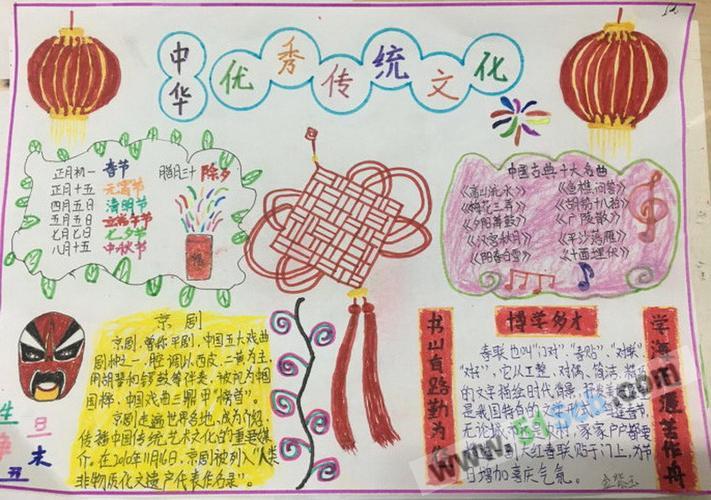 中华优秀传统文化
正月初一 春节
正月十五 元宵节
四月五日 清明节
五月五日 端午节
七月七日 七夕节
八月十五 中秋节
腊月三十 除夕
中国古典十大名曲
《高山流水》 《渔樵问答》
《梅花三弄》 《胡笳十八拍》
《夕阳箫鼓》 《广陵散》
《汉宫秋月》 《平沙落雁》
《阳春白雪》 《十面埋伏》
京剧
京剧,曾称平剧,中国五大戏曲
剧种之一,腔调以西皮、二黄为主,
用胡琴和锣鼓等伴奏,被视为中国
国粹,中国戏曲三鼎甲“榜首”。
京剧走遍世界各地,成为介绍、
传播中国传统艺术文化的重要媒
介。在2010年11月16日,京剧被列入“人类
非物质化文遗产代表作名录”。
生 旦
净 末
丑
博学多才
书山有路勤为
学海 涯苦作舟
春联也叫“门对”、“春贴”、“对联”
“对	”,它以工整、对偶、简洁、精巧
的文字描绘时代背景,
是我国特有的文学形式。 春节,
无论城市 农村,家家户户都要
大红春联贴于门上,为节
日增加喜庆气氛。
www.51 .com